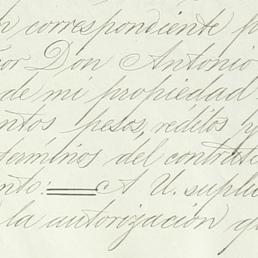 n correspondiente p
or Don Antonio
de mi propiedad
entos pesos, reditos hi
terminos del contrato
nto: = A U. supli
la autorización q